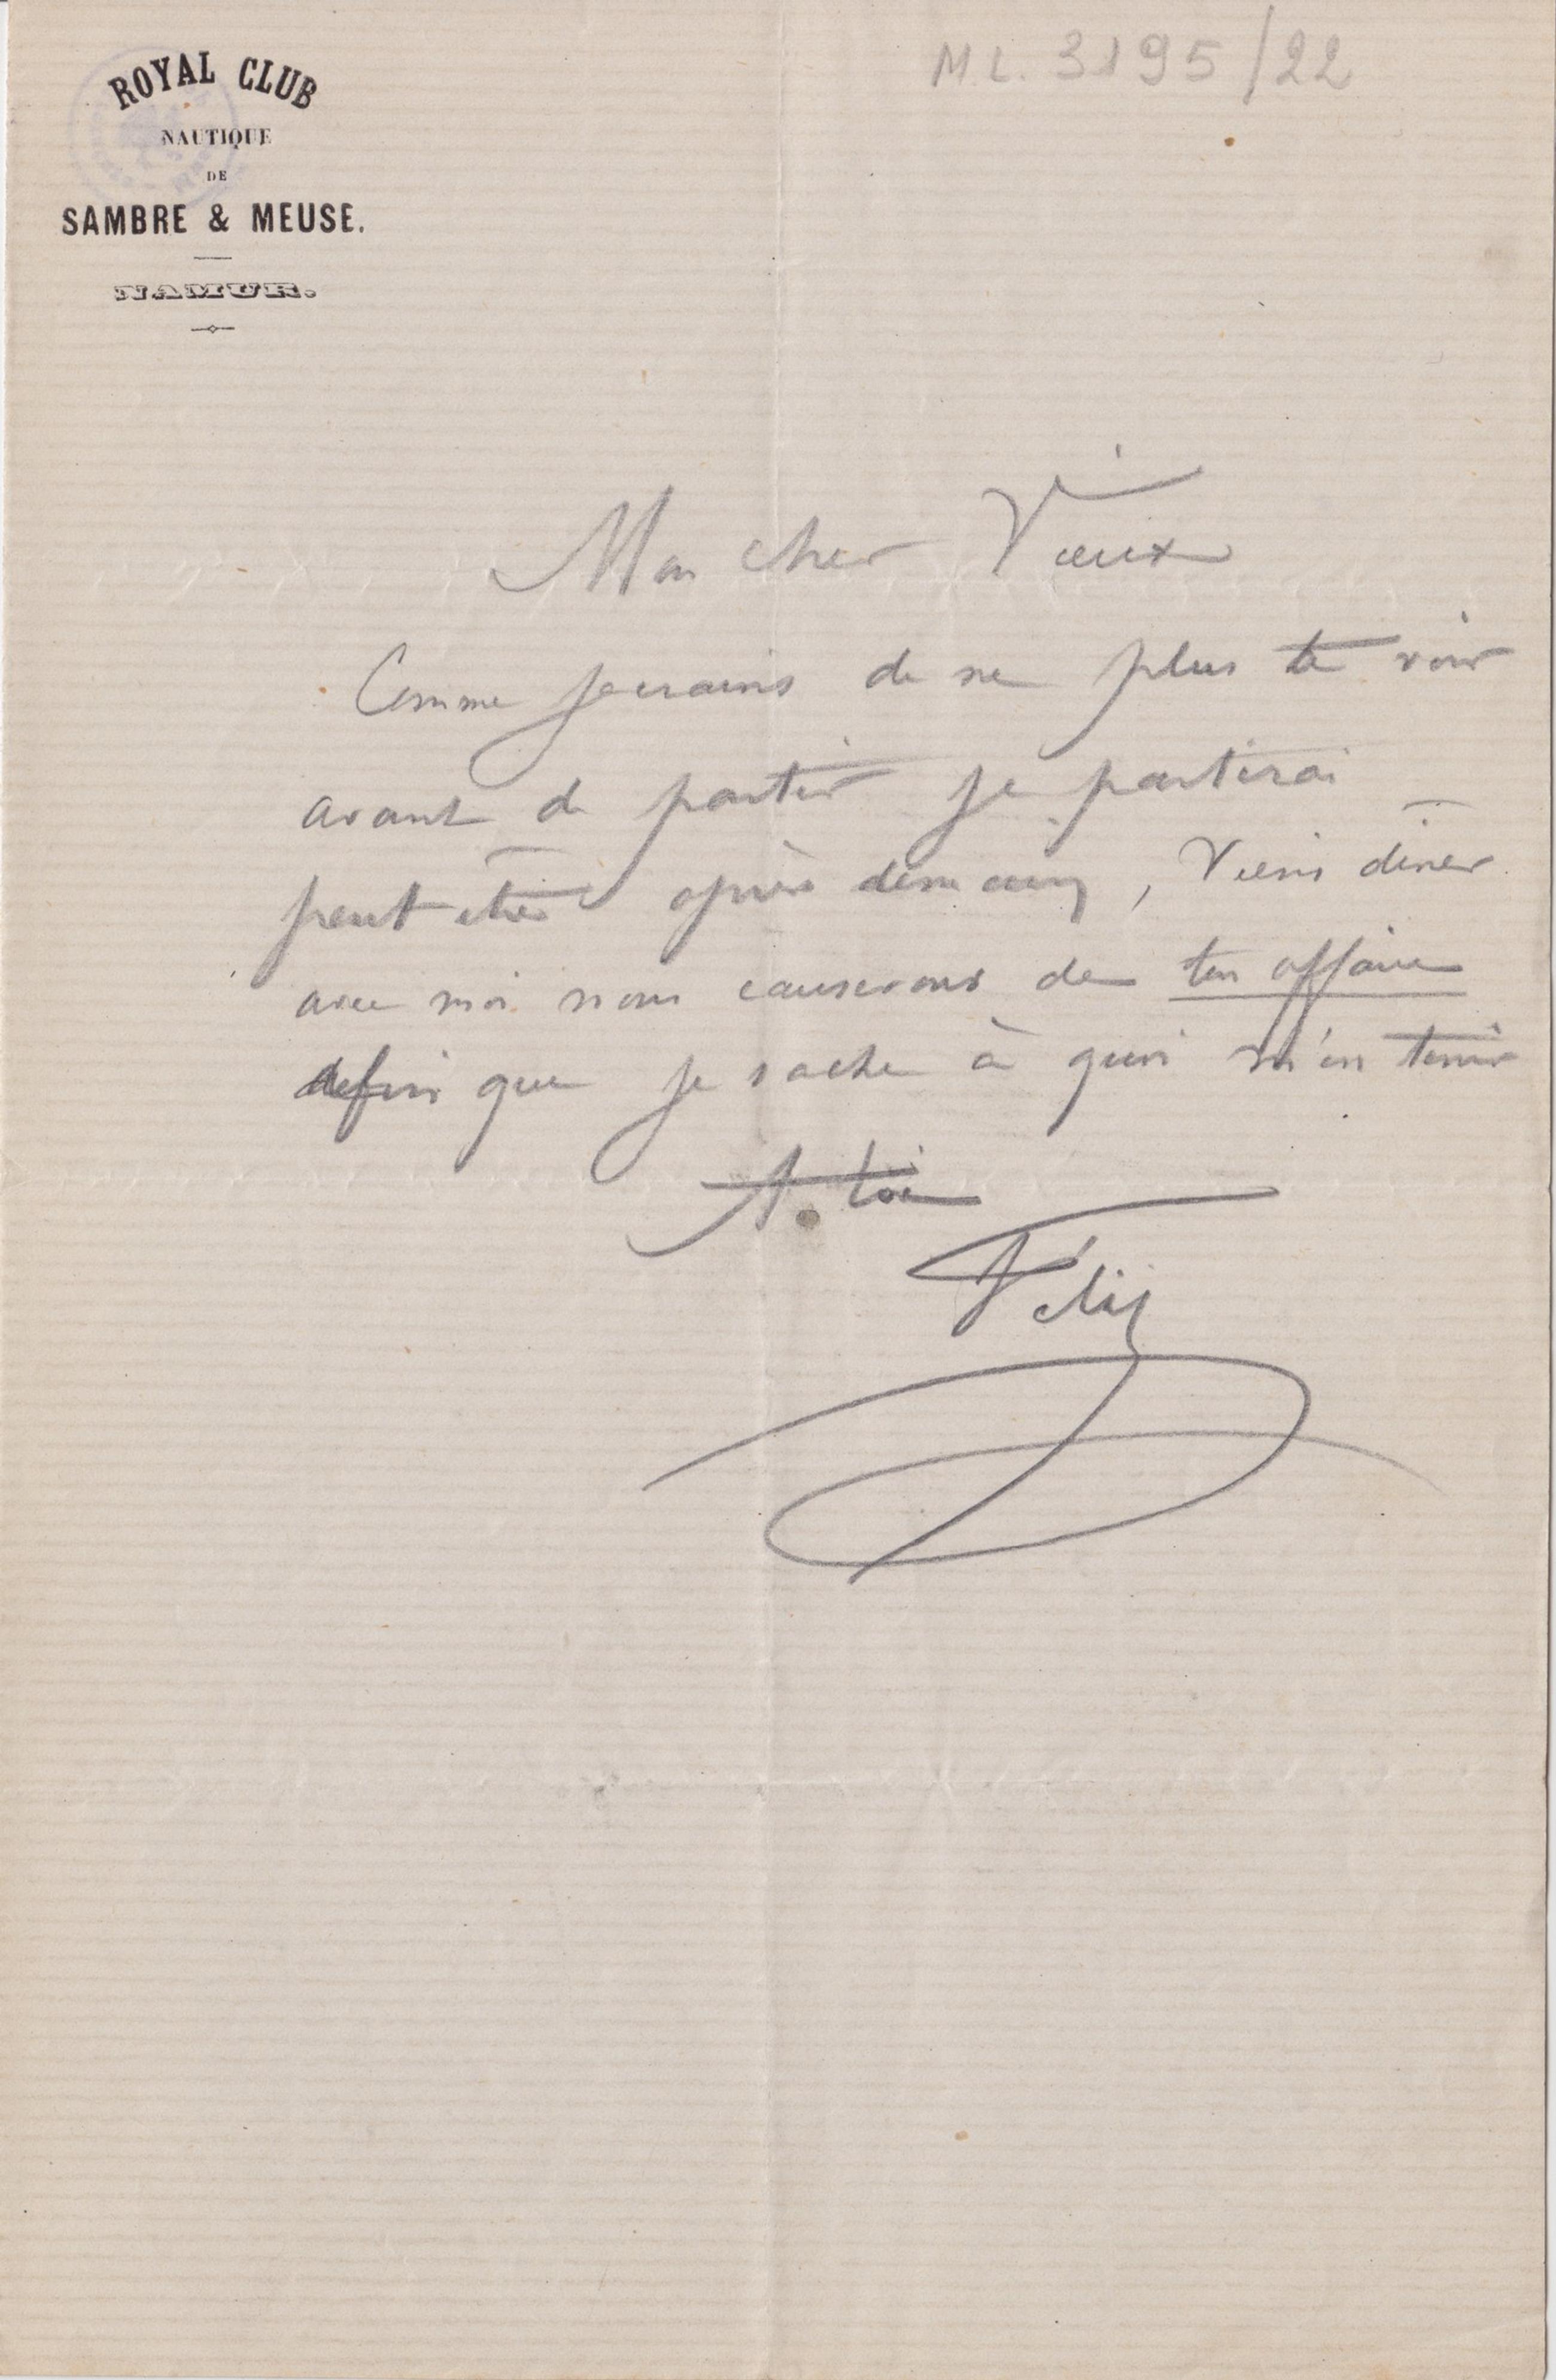 ML. 3195/22
ROYAL CLUB
NAUTIQUE
DE
SAMBRE & MEUSE.
NAMUR.
Mon cher Vieux
Comme je crains de ne plus te voir
avant de partir je partirai
peut être après demain, Viens diner
avec moi nous causerons de ton affaire
afin que je sache à quoi m'en tenir
A toi
Félix